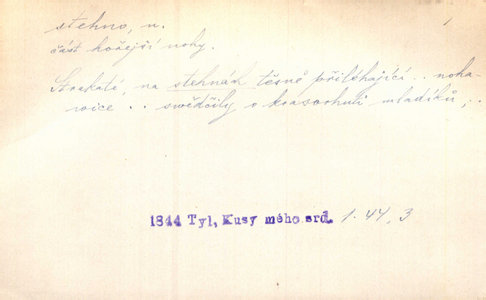 stehno, n.
část hořejší nohy.
Strakaté, na stehnách těsně přiléhající .. noha-
vice .. svědčily o krasochuti mladíků, ..
1844 Tyl, Kusy mého srd. 1. 44, 3